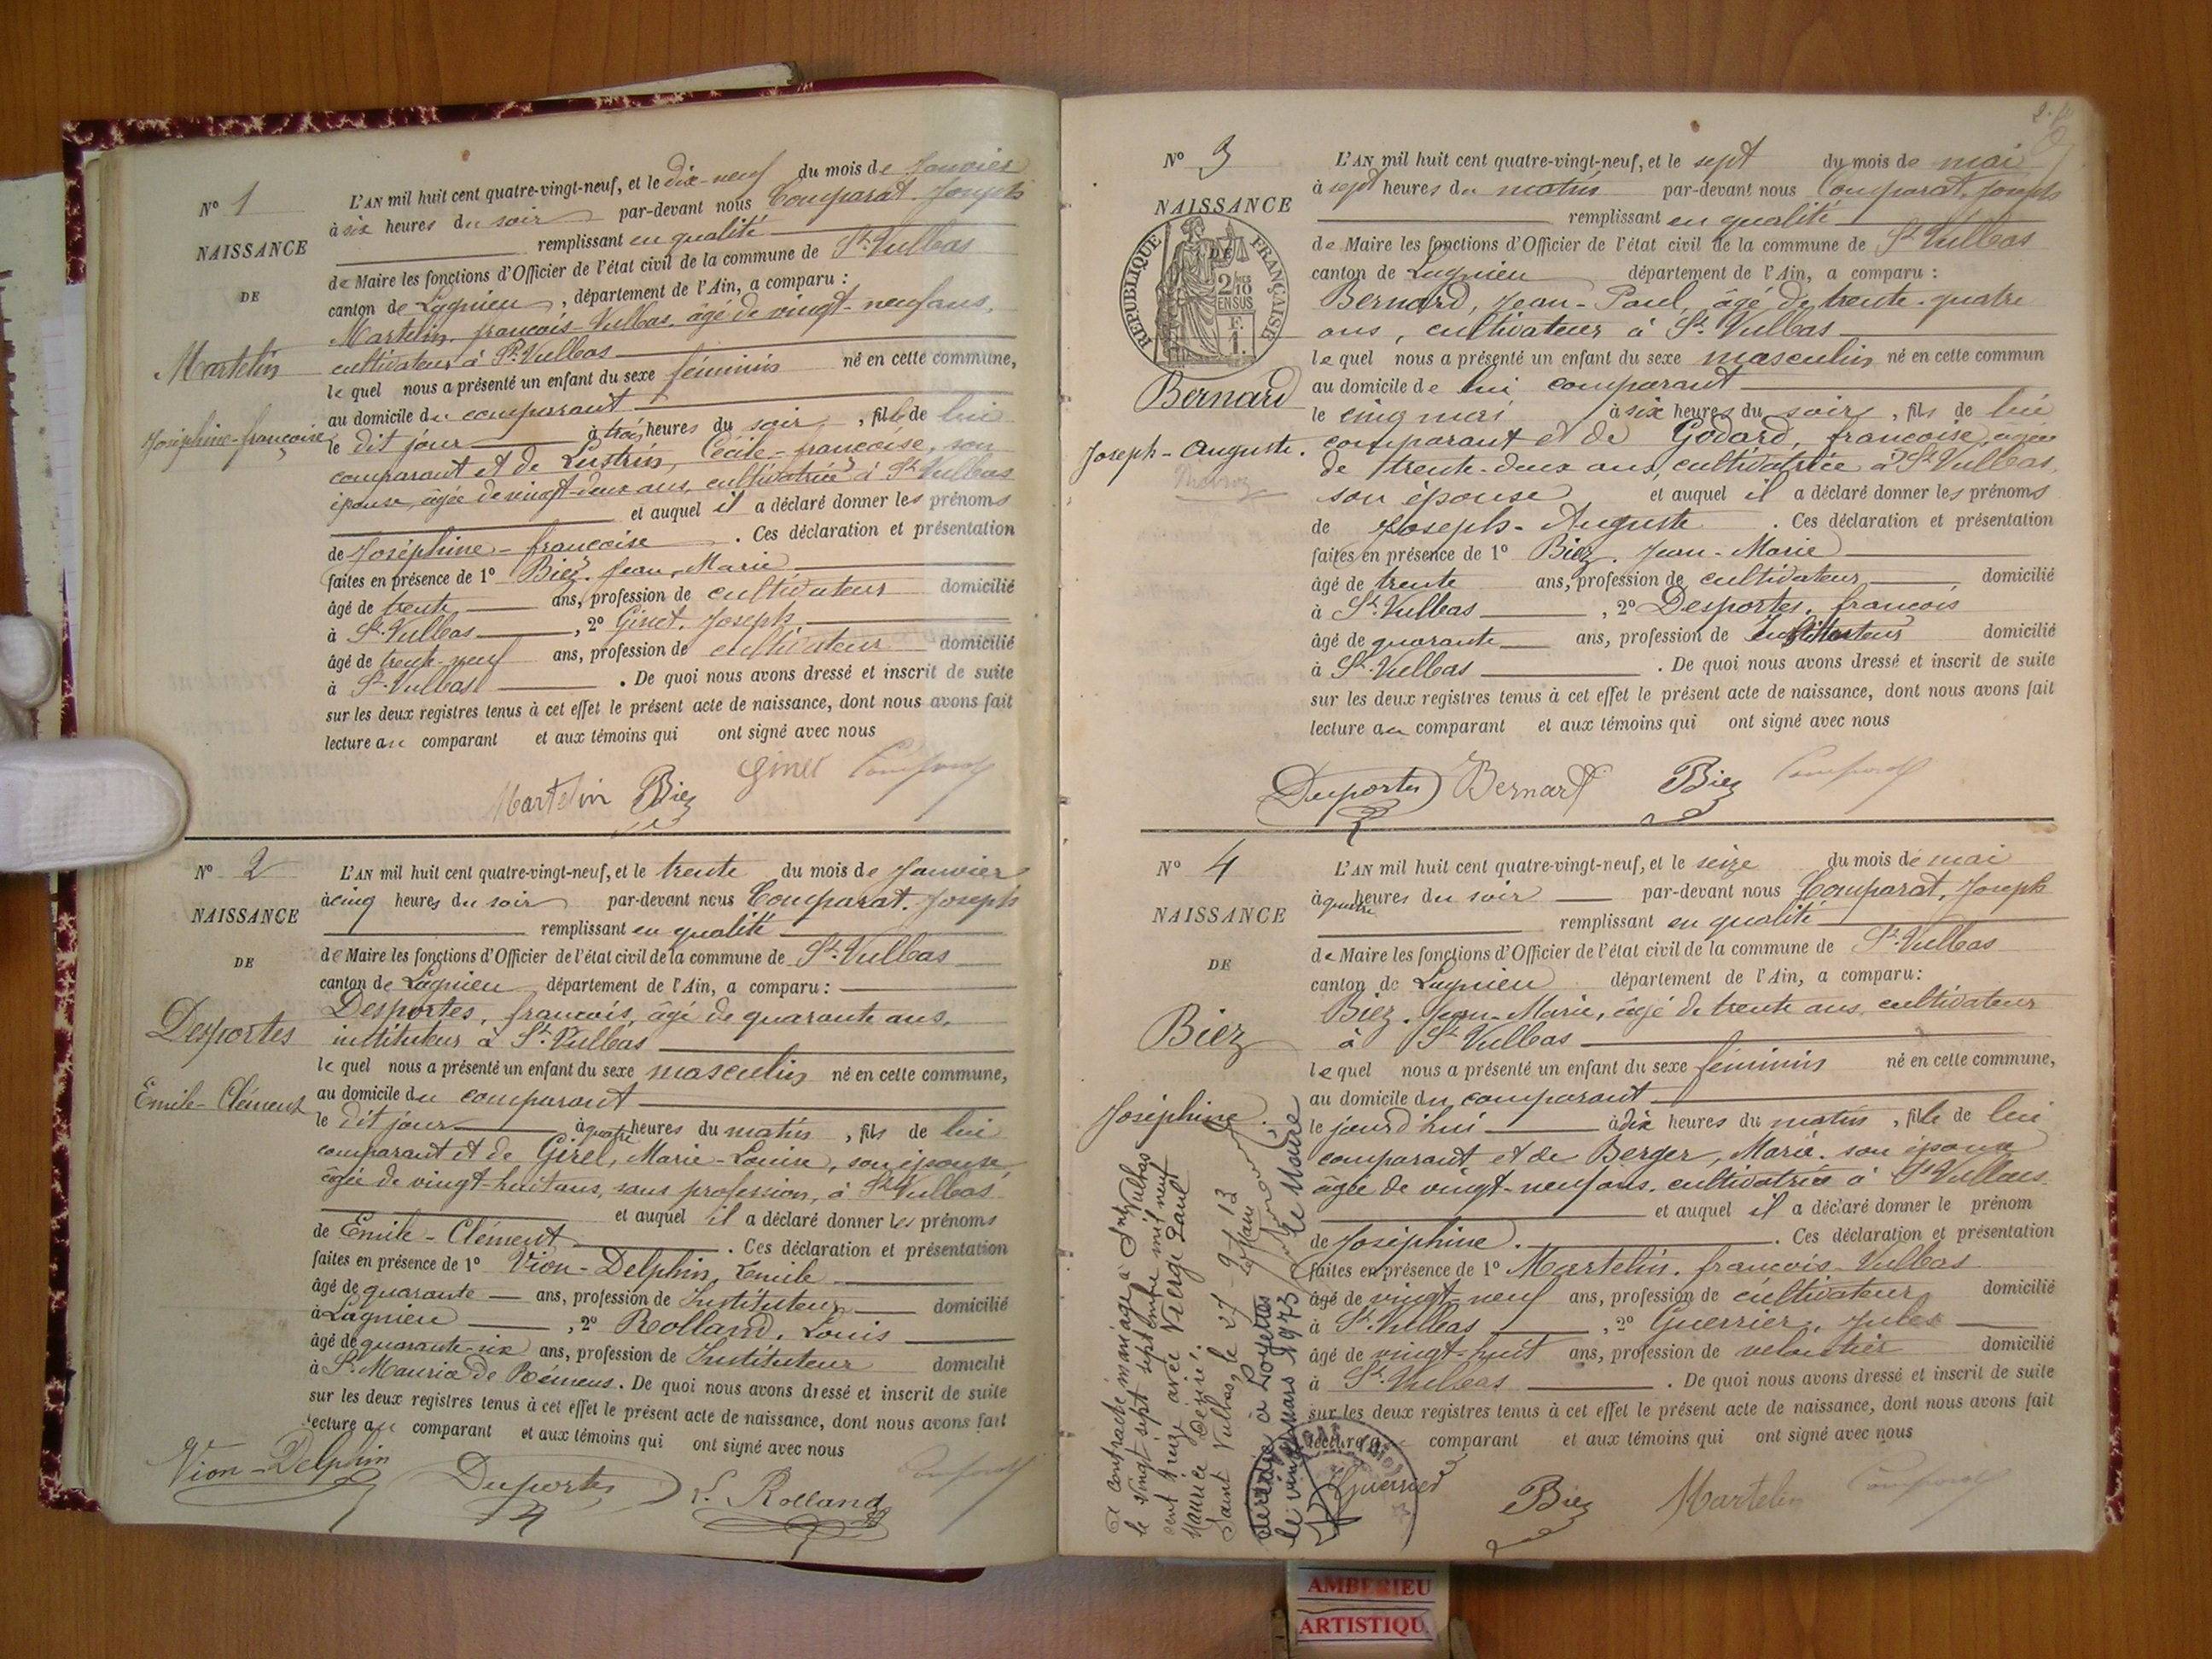 N° 1
NAISSANCE
DE
Martelin
Joséphine-françoise
L'AN mil huit cent quatre-vingt-neuf, et le dix-neuf du mois de Janvier
à six heures du soir par-devant nous Comparat. Joseph
remplissant en qualité
de Maire les fonctions d'Officier de l'état civil de la commune de St. Vulbas
canton de Lagnieu, département de l'Ain, a comparu :
Martelin, françois-Vulbas, âgé de vingt-neuf ans,
cultivateur à St. Vulbas
lequel nous a présenté un enfant du sexe féminin né en cette commune,
au domicile du comparant
le dit jour à trois heures du soir, fille de lui
comparant et de Lustrin, Cécile-françoise, son
épouse, âgée de vingt-deux ans, cultivatrice à St Vulbas
et auquel il a déclaré donner les prénoms
de Joséphine-françoise. Ces déclaration et présentation
faites en présence de 1° Biez. Jean-Marie
âgé de trente ans, profession de cultivateur domicilié
à St. Vulbas, 2° Ginet. Joseph
âgé de trente-neuf ans, profession de cultivateur domicilié
à St. Vulbas. De quoi nous avons dressé et inscrit de suite
sur les deux registres tenus à cet effet le présent acte de naissance, dont nous avons fait
lecture au comparant et aux témoins qui ont signé avec nous
Martelin Biez Ginet Comparat
N° 2
NAISSANCE
DE
Desportes
Emile-Clément
L'AN mil huit cent quatre-vingt-neuf, et le trente du mois de Janvier
à cinq heures du soir par-devant nous Comparat. Joseph
remplissant en qualité
de Maire les fonctions d'Officier de l'état civil de la commune de St. Vulbas
canton de Lagnieu département de l'Ain, a comparu :
Desportes, françois, âgé de quarante ans,
instituteur à St. Vulbas
lequel nous a présenté un enfant du sexe masculin né en cette commune,
au domicile du comparant
le dit jour à quatre heures du matin, fils de lui
comparant et de Girel, Marie-Louise, son épouse
âgée de vingt-huit ans, sans profession, à St Vulbas
et auquel il a déclaré donner les prénoms
de Emile-Clément. Ces déclaration et présentation
faites en présence de 1° Vion-Delphin, Emile
âgé de quarante ans, profession de Instituteur domicilié
à Lagnieu, 2° Rolland. Louis
âgé de quarante-six ans, profession de Instituteur domicilié
à St. Maurice de Rémens. De quoi nous avons dressé et inscrit de suite
sur les deux registres tenus à cet effet le présent acte de naissance, dont nous avons fait
lecture au comparant et aux témoins qui ont signé avec nous
Vion-Delphin Desportes L. Rolland Comparat
N° 3
NAISSANCE
DE
REPUBLIQUE FRANÇAISE
2/10 EN SUS
Bernard
Joseph-Auguste.
L'AN mil huit cent quatre-vingt-neuf, et le sept du mois de mai
à sept heures du matin par-devant nous Comparat. Joseph
remplissant en qualité
de Maire les fonctions d'Officier de l'état civil de la commune de St. Vulbas
canton de Lagnieu département de l'Ain, a comparu :
Bernard, Jean-Paul, âgé de trente-quatre
ans, cultivateur à St. Vulbas
lequel nous a présenté un enfant du sexe masculin né en cette commun
au domicile de lui comparant
le cinq mai à six heures du soir, fils de lui
comparant et de Godard, francoise, agée
de trente-deux ans, cultivatrice à St Vulbas,
son épouse et auquel il a déclaré donner les prénoms
de Joseph-Auguste. Ces déclaration et présentation
faites en présence de 1° Biez. Jean-Marie
âgé de trente ans, profession de cultivateur domicilié
à St. Vulbas, 2° Desportes. francois
âgé de quarante ans, profession de Instituteur domicilié
à St. Vulbas. De quoi nous avons dressé et inscrit de suite
sur les deux registres tenus à cet effet le présent acte de naissance, dont nous avons fait
lecture au comparant et aux témoins qui ont signé avec nous
Desportes Bernard Biez Comparat
N° 4
NAISSANCE
DE
Biez
Joséphine.
L'AN mil huit cent quatre-vingt-neuf, et le seize du mois de mai
à quatre heures du soir par-devant nous Comparat, Joseph
remplissant en qualité
de Maire les fonctions d'Officier de l'état civil de la commune de St. Vulbas
canton de Lagnieu département de l'Ain, a comparu :
Biez. Jean-Marie, âgé de trente ans, cultivateur
à St Vulbas
lequel nous a présenté un enfant du sexe féminin né en cette commune,
au domicile du comparant
le jourd'hui à dix heures du matin, fille de lui
comparant et de Berger, Marie. son épouse
âgée de vingt-neuf ans, cultivatrice à St Vulbas
et auquel il a déclaré donner le prénom
de Joséphine. Ces déclaration et présentation
faites en présence de 1° Martelin. francois-Vulbas
âgé de vingt-neuf ans, profession de cultivateur domicilié
à St. Vulbas, 2° Guerrier. Jules
âgé de vingt-huit ans, profession de domicilié
à St. Vulbas. De quoi nous avons dressé et inscrit de suite
sur les deux registres tenus à cet effet le présent acte de naissance, dont nous avons fait
lecture au comparant et aux témoins qui ont signé avec nous
Guerrier Biez Martelin Comparat
A contracté mariage à Saint Vulbas
le vingt sept septembre mil neuf
cent treize avec Vierge Paul
Maurice Désiré.
Saint Vulbas, le 27-9-13
Le Maire
décédée à Loyettes
le vingt mars 1973 le Maire
AMBERIEU
ARTISTIQU